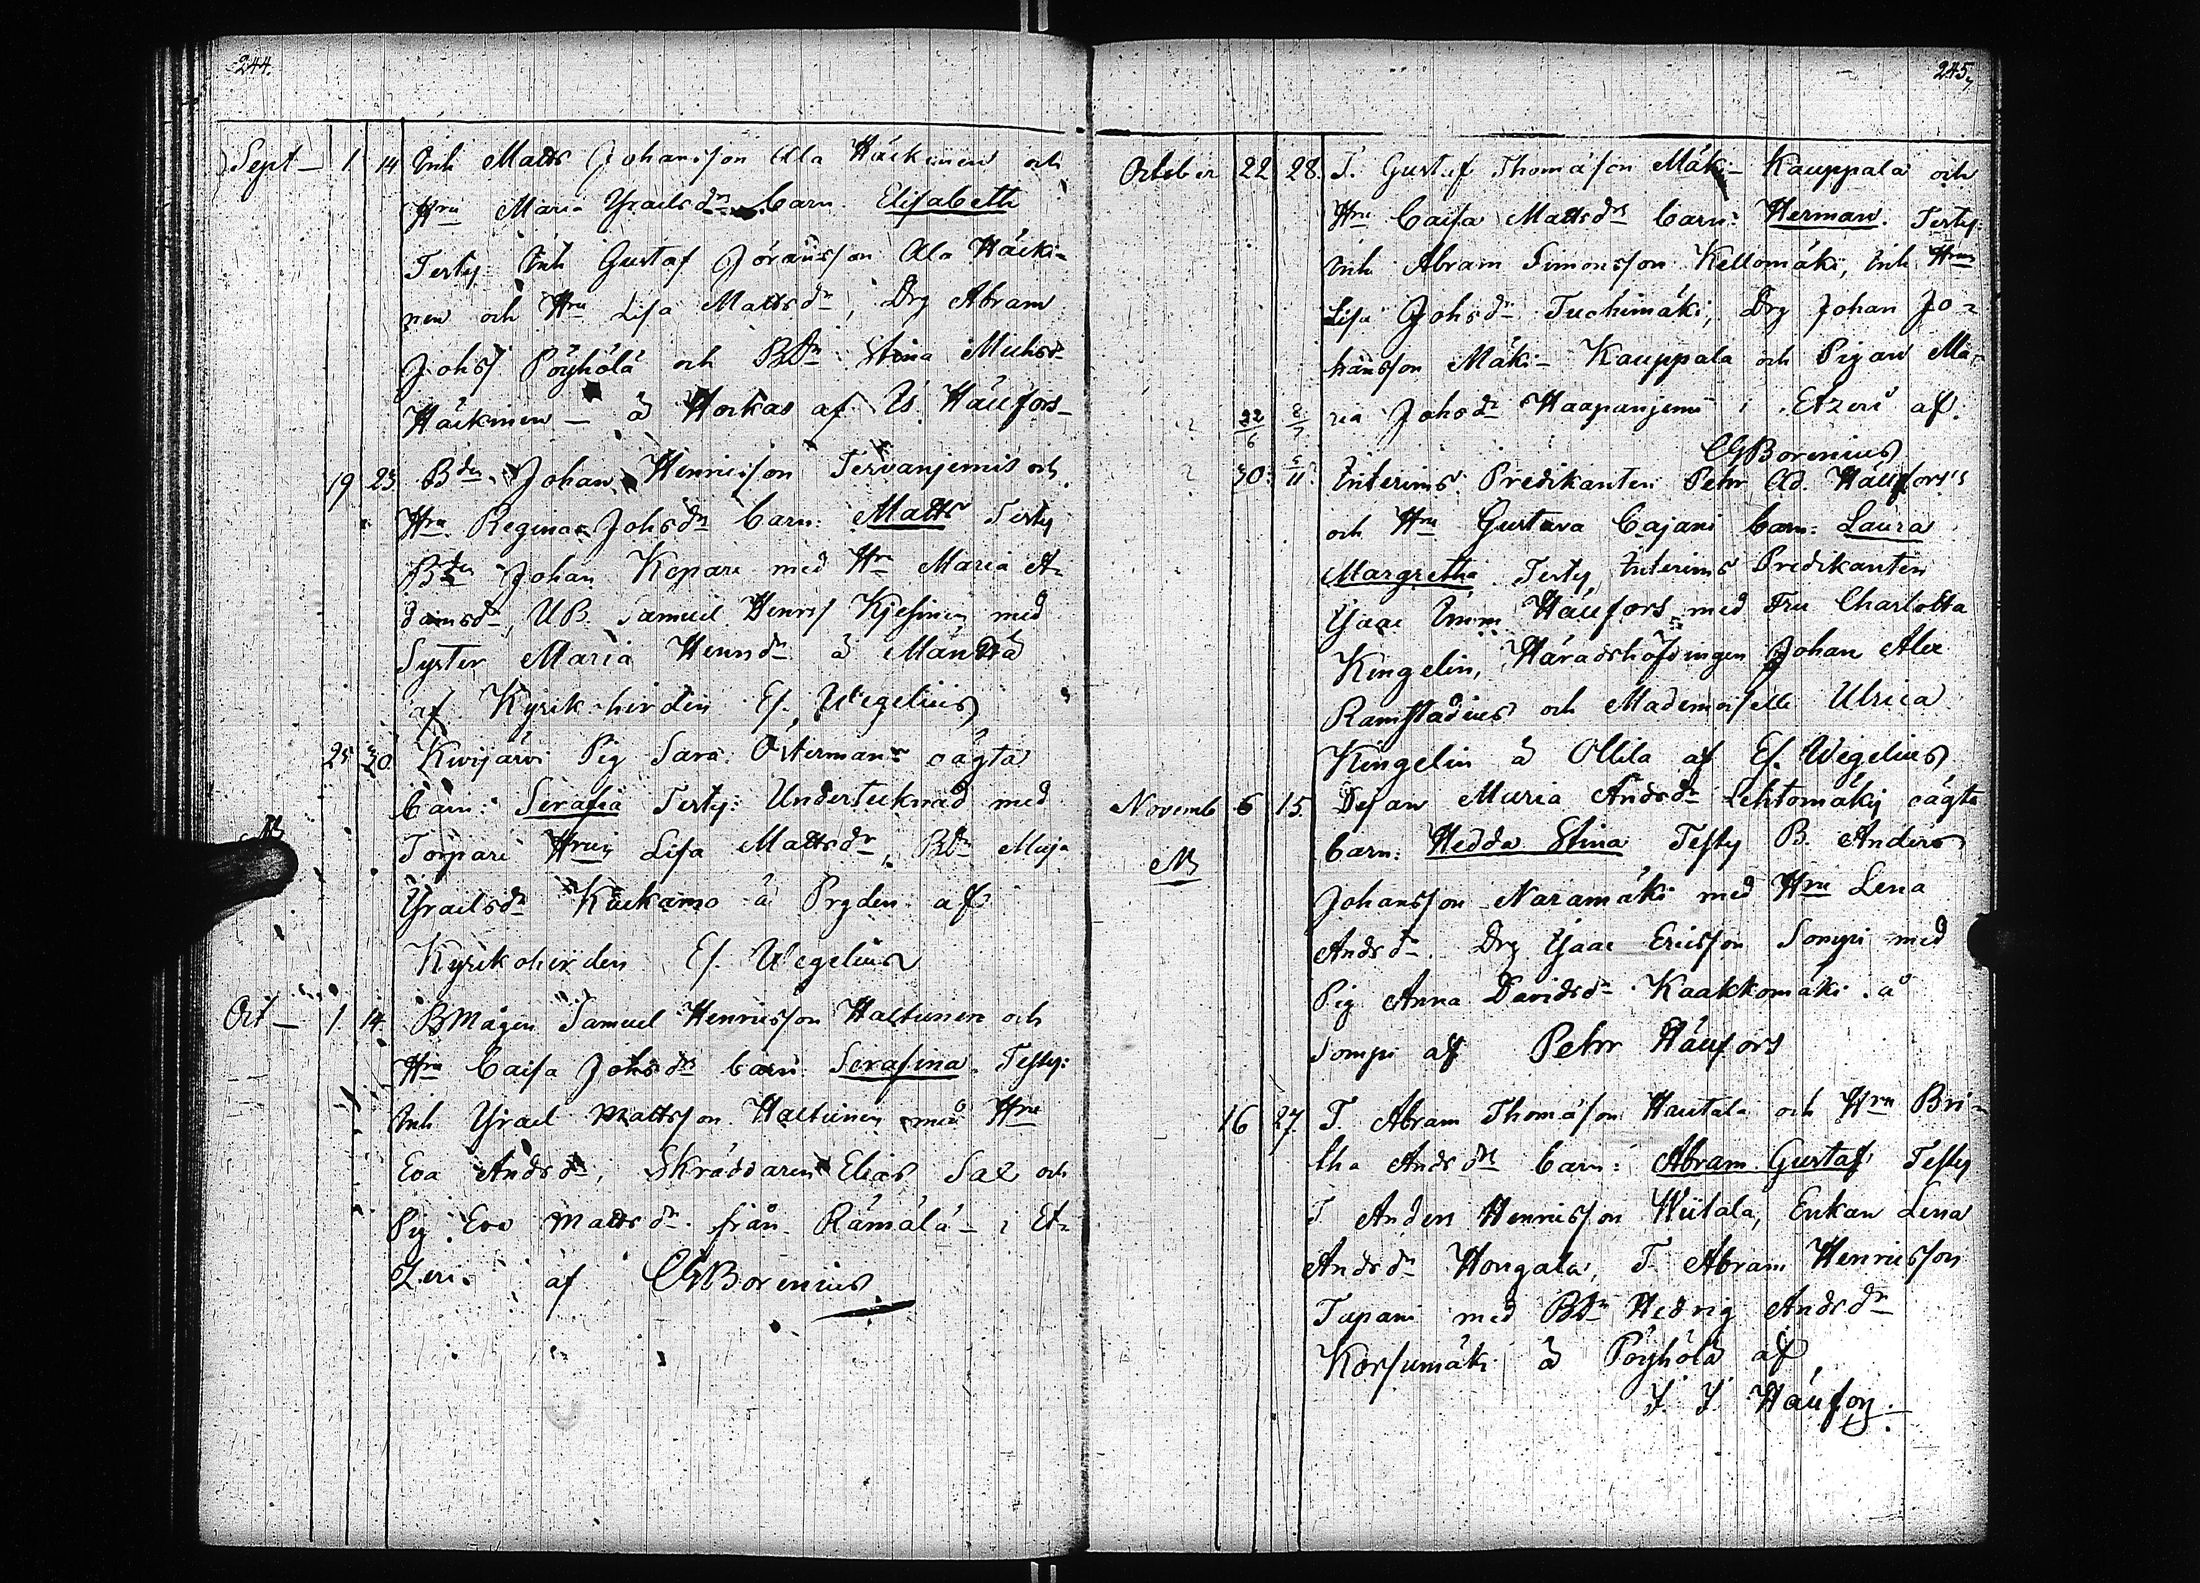 244.
Sept 1. 14 Inh Matts Johansson Ala Häckinen och
Hru Maria Yrailsdr barn Elisabeth
Testy: Inh Gustaf Jöransson Ala Häcki-
nen och Hru Lisa Mattsdr, Drg Abram
Johss Pöyhölä och BDr Stina
Häckinen å af Is. Häufors
19 23 Bdn Johan Henricsson Tervanjemis och
Hru Regina Johsdr barn: Matts Testy
Bdn Johan Kopare med Hru Maria A-
damsdr, UB. Samuel Henrss med
Syster Maria Henrsdr å Mänttä
af Kyrikoherden Ef. Wegelius
25 30. Kivijärvi Pig Sara Österman oägta
barn: Serafia Testy: Undertecknad med
NB Torpare Hrun Lisa Mattsdr, BDr Maja
Yrailsdr Kuckamo å Prgden af
Kyrikoherden Ef. Wegelius
Oct 1. 14. BMågen Samuel Henricsson Haltunen och
Hru Caisa Johsdr barn Serafina. Testy:
Inh Yrael Mattsson Haltunen med Hru
Eva Andsdr, Skräddaren Elias Sal och
Pig Eva Mattsdr från Rämälä i Et-
zeri. af CGBorenius
245,
October 22 28. T. Gustaf Thomasson Mäki-Kauppala och
Hru Caisa Mattsdr barn: Herman. Testy:
Inh Abram Simonsson Kellomäki, Inh Hrun
Lisa Johsdr Tuohimäki, Drg Johan Jo-
hansson Mäki-Kauppala och Pigan Ma-
? 22/6 8/7 ria Johsdr Haapanjemi i Etzeri af
CGBorenius
? 30. 5/11? Interims Predikanten Pehr Ad. Häufors's
och Hru Gustava Cajani barn: Laura
Margretha Testy, Interims Predikanten
Ysaac Imm Häufors med Fru Charlotta
Kingelin, Häradshöfdingen Johan Alex
Ramstadius och Mademoiselle Ulrica
Kingelin å Ollila af Ef. Wegelius
Novemb 6 15. Dejan Maria Andsdr Lehtomäki oägta
NB barn: Hedda Stina Testy B. Anders
Johansson Naramäki med Hru Lena
Andsdr. Drg Ysaac Ericsson Sompi med
Pig Anna Davidsdr Kaakkomäki å
Sompi af Pehr Häufors
16 27. T. Abram Thomasson Hautala och Hru Bri-
tha Andsdr barn: Abram Gustaf Testy
T Anders Henricsson Wiitala, Enkan Lena
Andsdr Hongala, T. Abram Henricsson
Tapani med BDr Hedvig Andsdr
Korsumäki å Pöyhölä af
I. I. Häufors.